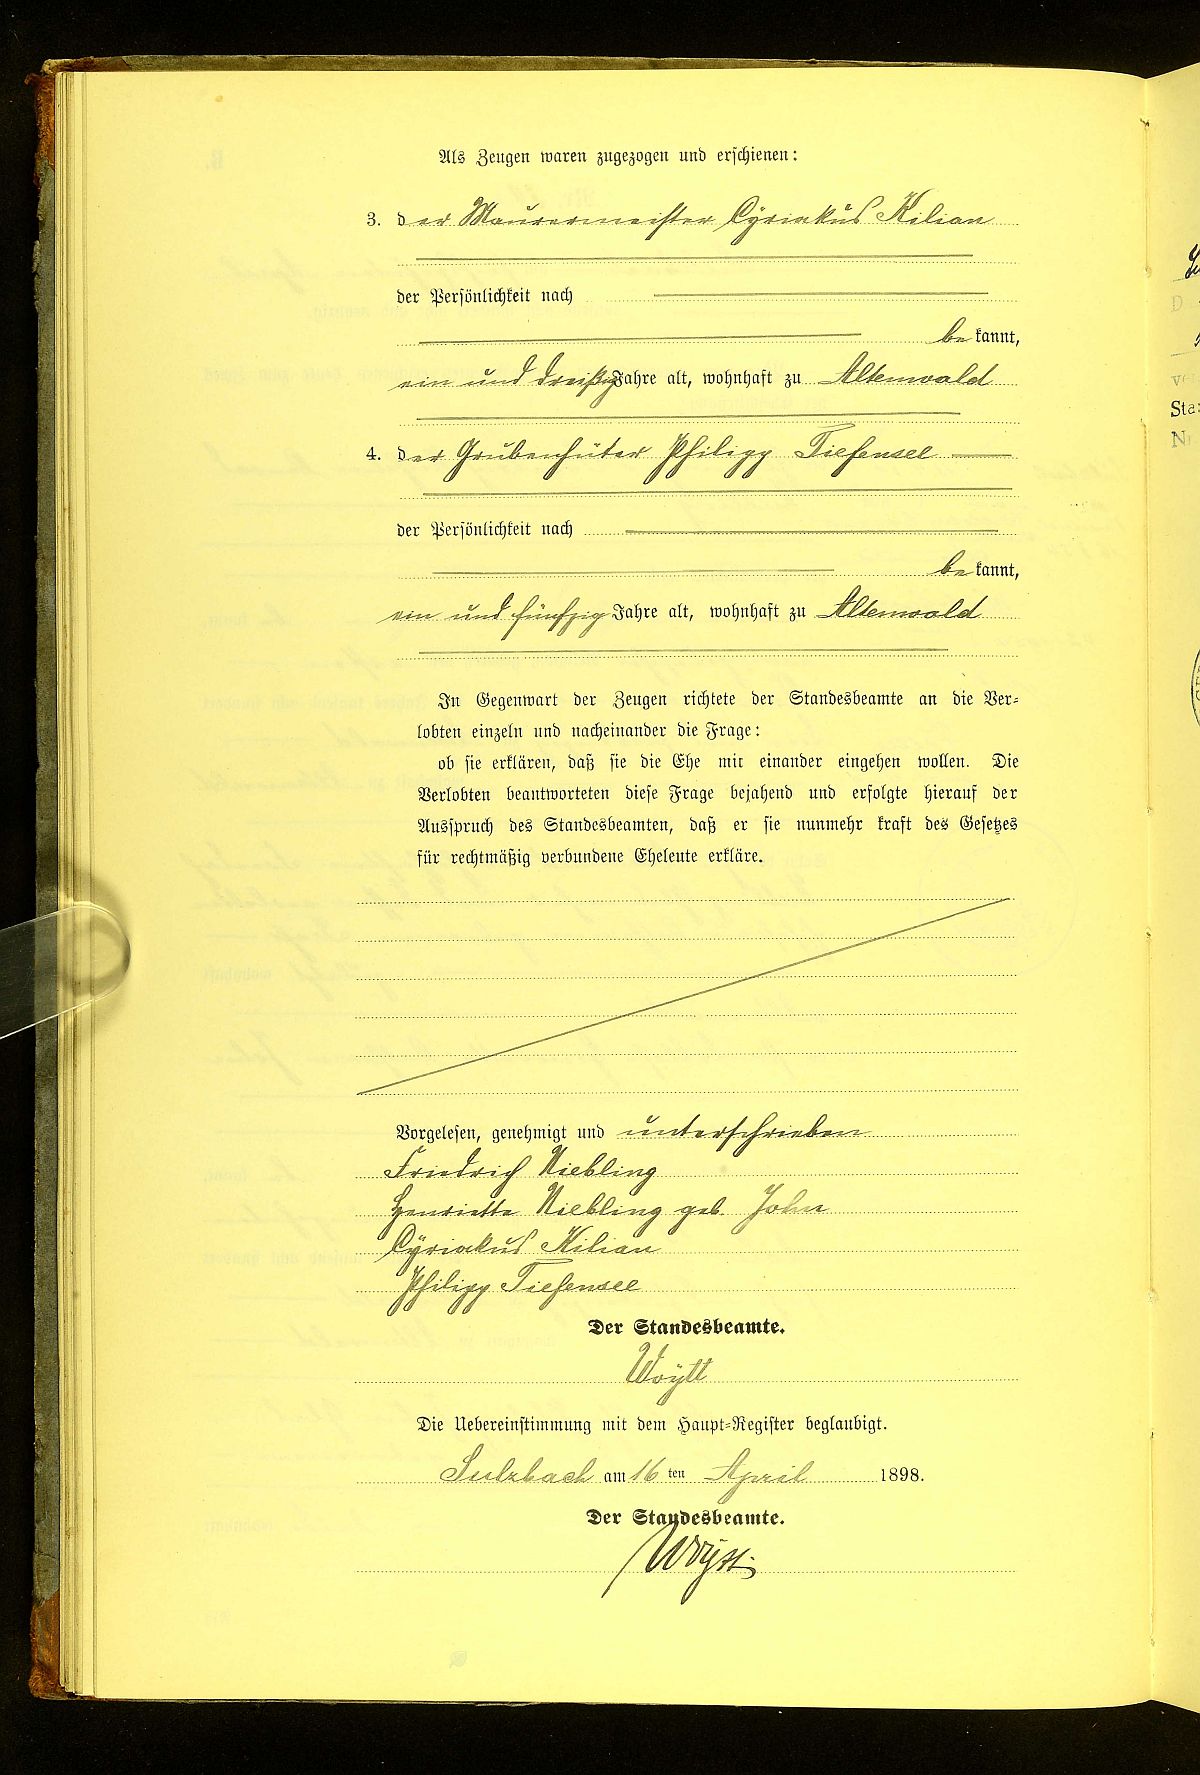 Als Zeugen waren zugezogen und erschienen:
3. der Maurermeister Cyriakus Kilian
der Persönlichkeit nach
bekannt,
ein und dreißig Jahre alt, wohnhaft zu Altenwald
4. der Grubenhüter Philipp Tiefensee
der Persönlichkeit nach
bekannt,
ein und fünfzig Jahre alt, wohnhaft zu Altenwald
In Gegenwart der Zeugen richtete der Standesbeamte an die Ver-
lobten einzeln und nacheinander die Frage:
ob sie erklären, daß sie die Ehe mit einander eingehen wollen. Die
Verlobten beantworteten diese Frage bejahend und erfolgte hierauf der
Ausspruch des Standesbeamten, daß er sie nunmehr kraft des Gesetzes
für rechtmäßig verbundene Eheleute erkläre.
Vorgelesen, genehmigt und unterschrieben
Friedrich Niebling
Henriette Niebling geb. John
Cyriakus Kilian
Philipp Tiefensee
Der Standesbeamte.
Woytt
Die Uebereinstimmung mit dem Haupt-Register beglaubigt.
Sulzbach am 16ten April 1898.
Der Standesbeamte.
Woytt